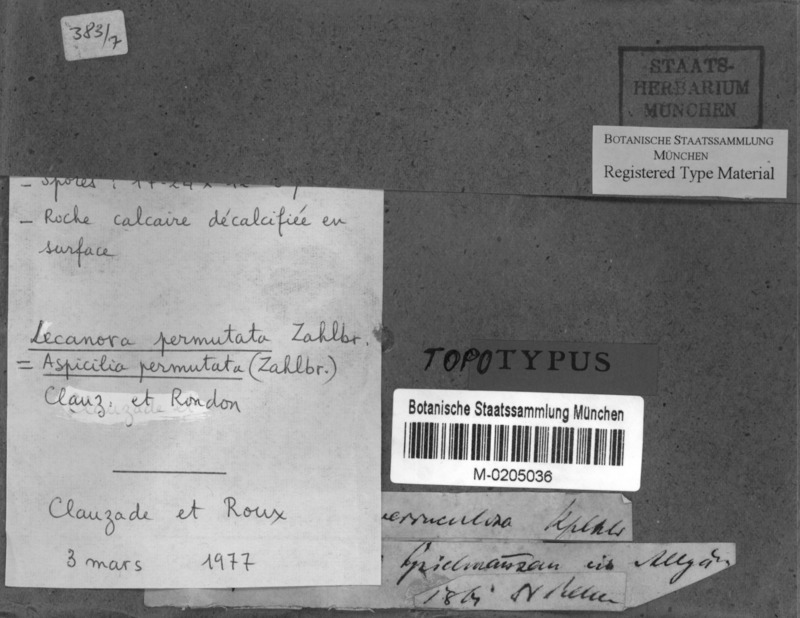 383/7
STAATS-
HERBARIUM
MÜNCHEN
BOTANISCHE STAATSSAMMLUNG
MÜNCHEN
Registered Type Material
- Spores :
- Roche calcaire décalcifiée en
surface
Lecanora permutata Zahlbr.
= Aspicilia permutata (Zahlbr.)
Clauz. et Rondon
Clauzade et Roux
3 mars 1977
TOPOTYPUS
Botanische Staatssammlung München
M-0205036
verruculosa Kplhbr
in Allgäu